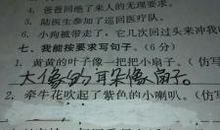 4、爸爸回绝了来人的无理要求。
5、陆医生参加了巡回医疗队。
6、小狗被带走了,它几次回过头来冲我
七、我能按要求写句子。(6分)
1、黄黄的叶子像一把把小扇子。(仿写
大像的耳朵像扇子。
2、牵牛花吹起了紫色的小喇叭。(仿